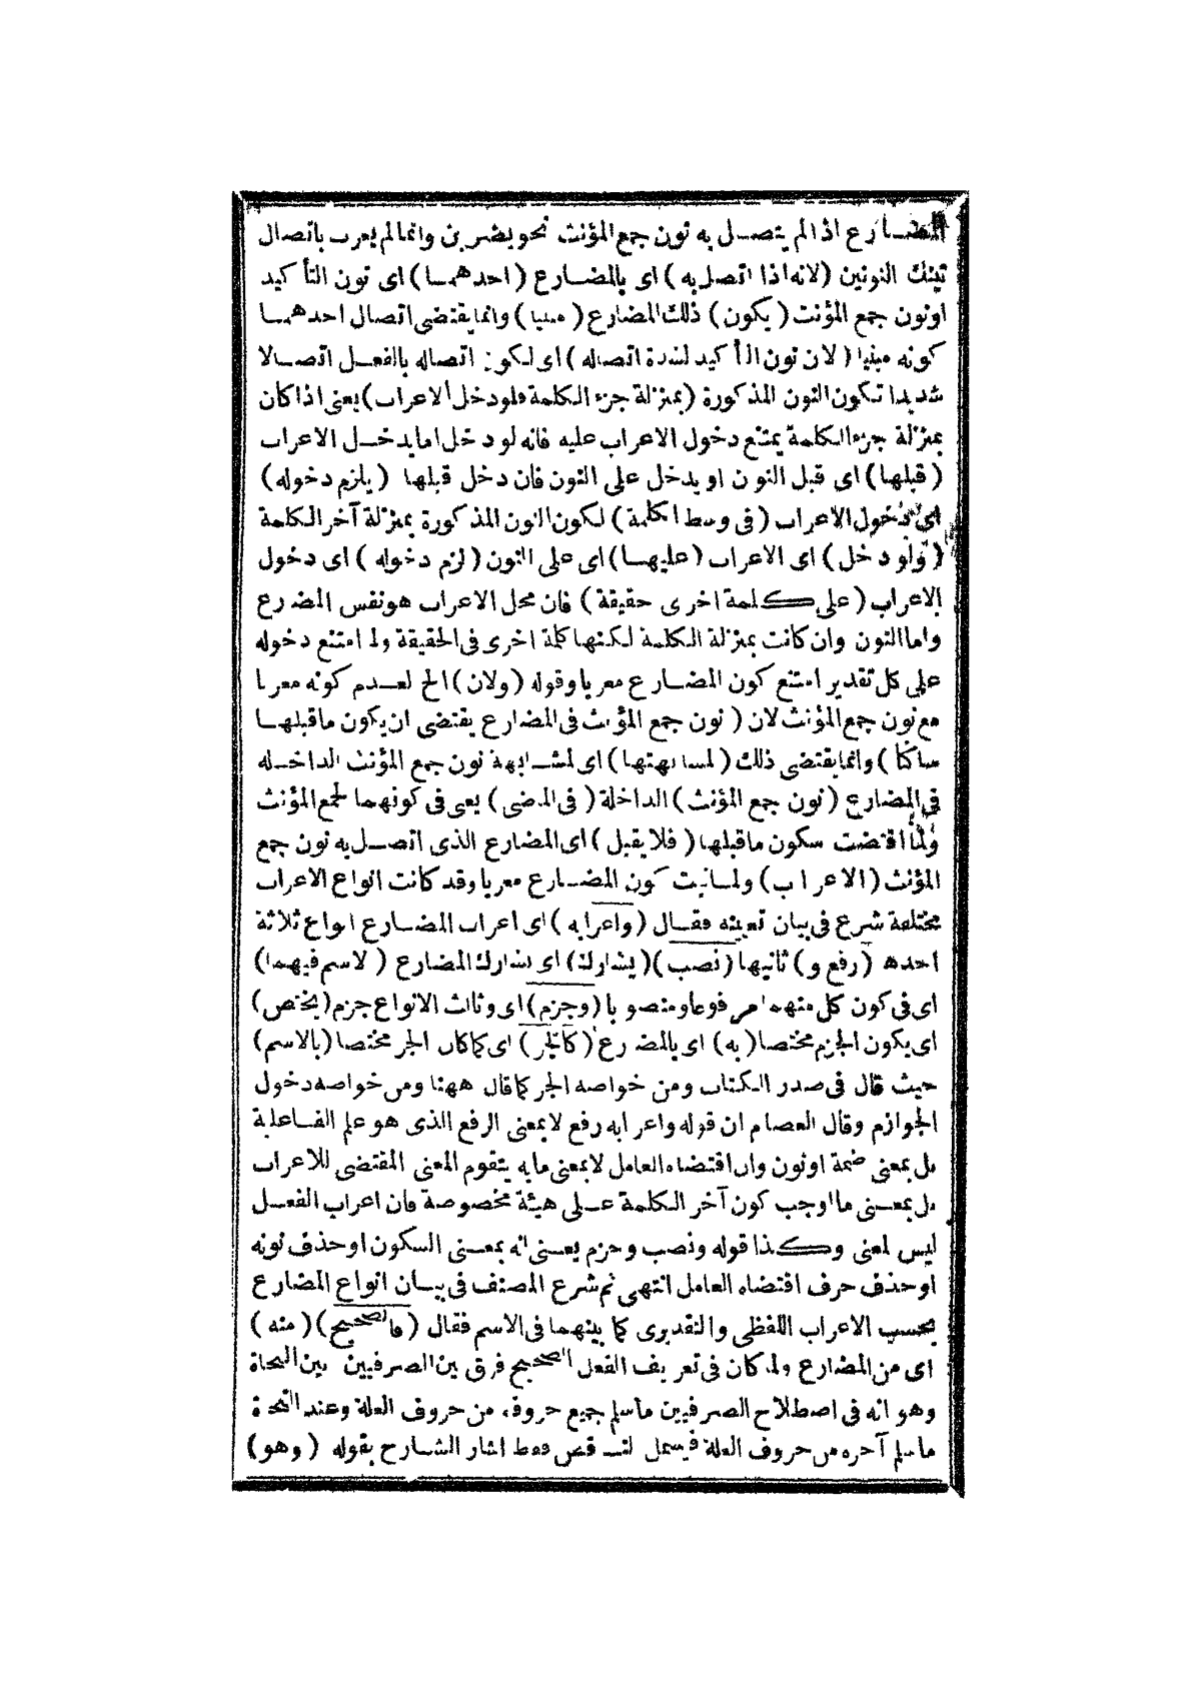 المضارع اذا لم يتصل به نون جمع المؤنث نحو يضربن وانما لم يعرب باتصال
تينك النونين (لانه اذا اتصل به) اى بالمضارع (احدهما) اى نون التأكيد
اونون جمع المؤنث (يكون) ذلك المضارع (مبنيا) وانما يقتضى اتصال احدهما
كونه مبنيا (لان نون التأكيد لشدة اتصاله) اى لكون اتصاله بالفعل اتصالا
شديدا تكون النون المذكورة (بمنزلة جزء الكلمة فلو دخل الاعراب) يعنى اذا كان
بمنزلة جزء الكلمة يمتنع دخول الاعراب عليه فانه لو دخل اما يدخل الاعراب
(قبلها) اى قبل النون او يدخل على النون فان دخل قبلها (يلزم دخوله)
اى دخول الاعراب (فى وسط الكلمة) لكون النون المذكورة بمنزلة آخر الكلمة
(ولو دخل) اى الاعراب (عليها) اى على النون (لزم دخوله) اى دخول
الاعراب (على كلمة اخرى حقيقة) فان محل الاعراب هو نفس المضارع
واما النون وان كانت بمنزلة الكلمة لكنها كلمة اخرى فى الحقيقة ولما امتنع دخوله
على كل تقدير امتنع كون المضارع معربا وقوله (ولان) الخ لعدم كونه معربا
مع نون جمع المؤنث لان (نون جمع المؤنث فى المضارع يقتضى ان يكون ما قبلها
ساكنا) وانما يقتضى ذلك (لمشابهتها) اى لمشابهة نون جمع المؤنث الداخله
فى المضارع (نون جمع المؤنث) الداخلة (فى الماضى) يعنى فى كونهما لجمع المؤنث
ولما اقتضت سكون ما قبلها (فلا يقبل) اى المضارع الذى اتصل به نون جمع
المؤنث (الاعراب) ولما ثبت كون المضارع معربا وقد كانت انواع الاعراب
مختلفة شرع فى بيان تعيينه فقال (واعرابه) اى اعراب المضارع انواع ثلاثة
احدها (رفع و) ثانيها (نصب) (يشارك) اى يشارك المضارع (الاسم فيهما)
اى فى كون كل منهما مرفوعا ومنصوبا (وجزم) اى وثالث الانواع جزم (يختص)
اى يكون الجزم مختصا (به) اى بالمضارع (كالجر) اى كما كان الجر مختصا (بالاسم)
حيث قال فى صدر الكتاب ومن خواصه الجر كما قال ههنا ومن خواصه دخول
الجوازم وقال العصام ان قوله واعرابه رفع لا بمعنى الرفع الذى هو علم الفاعلية
بل بمعنى ضمة اونون وان اقتضاه العامل لا بمعنى ما به يتقوم المعنى المقتضى للاعراب
بل بمعنى ما اوجب كون آخر الكلمة على هيئة مخصوصة فان اعراب الفعل
ليس لمعنى وكذا قوله ونصب وجزم يعنى انه بمعنى السكون او حذف نونه
او حذف حرف اقتضاه العامل انتهى ثم شرع المصنف فى بيان انواع المضارع
بحسب الاعراب اللفظى والتقديرى كما بينهما فى الاسم فقال (فالصحيح) (منه)
اى من المضارع ولما كان فى تعريف الفعل الصحيح فرق بين الصرفيين بين النحاة
وهو انه فى اصطلاح الصرفيين ما سلم جميع حروفه من حروف العلة وعند النحاة
ما سلم آخره من حروف العلة فيشمل فقط اشار الشارح بقوله (وهو)